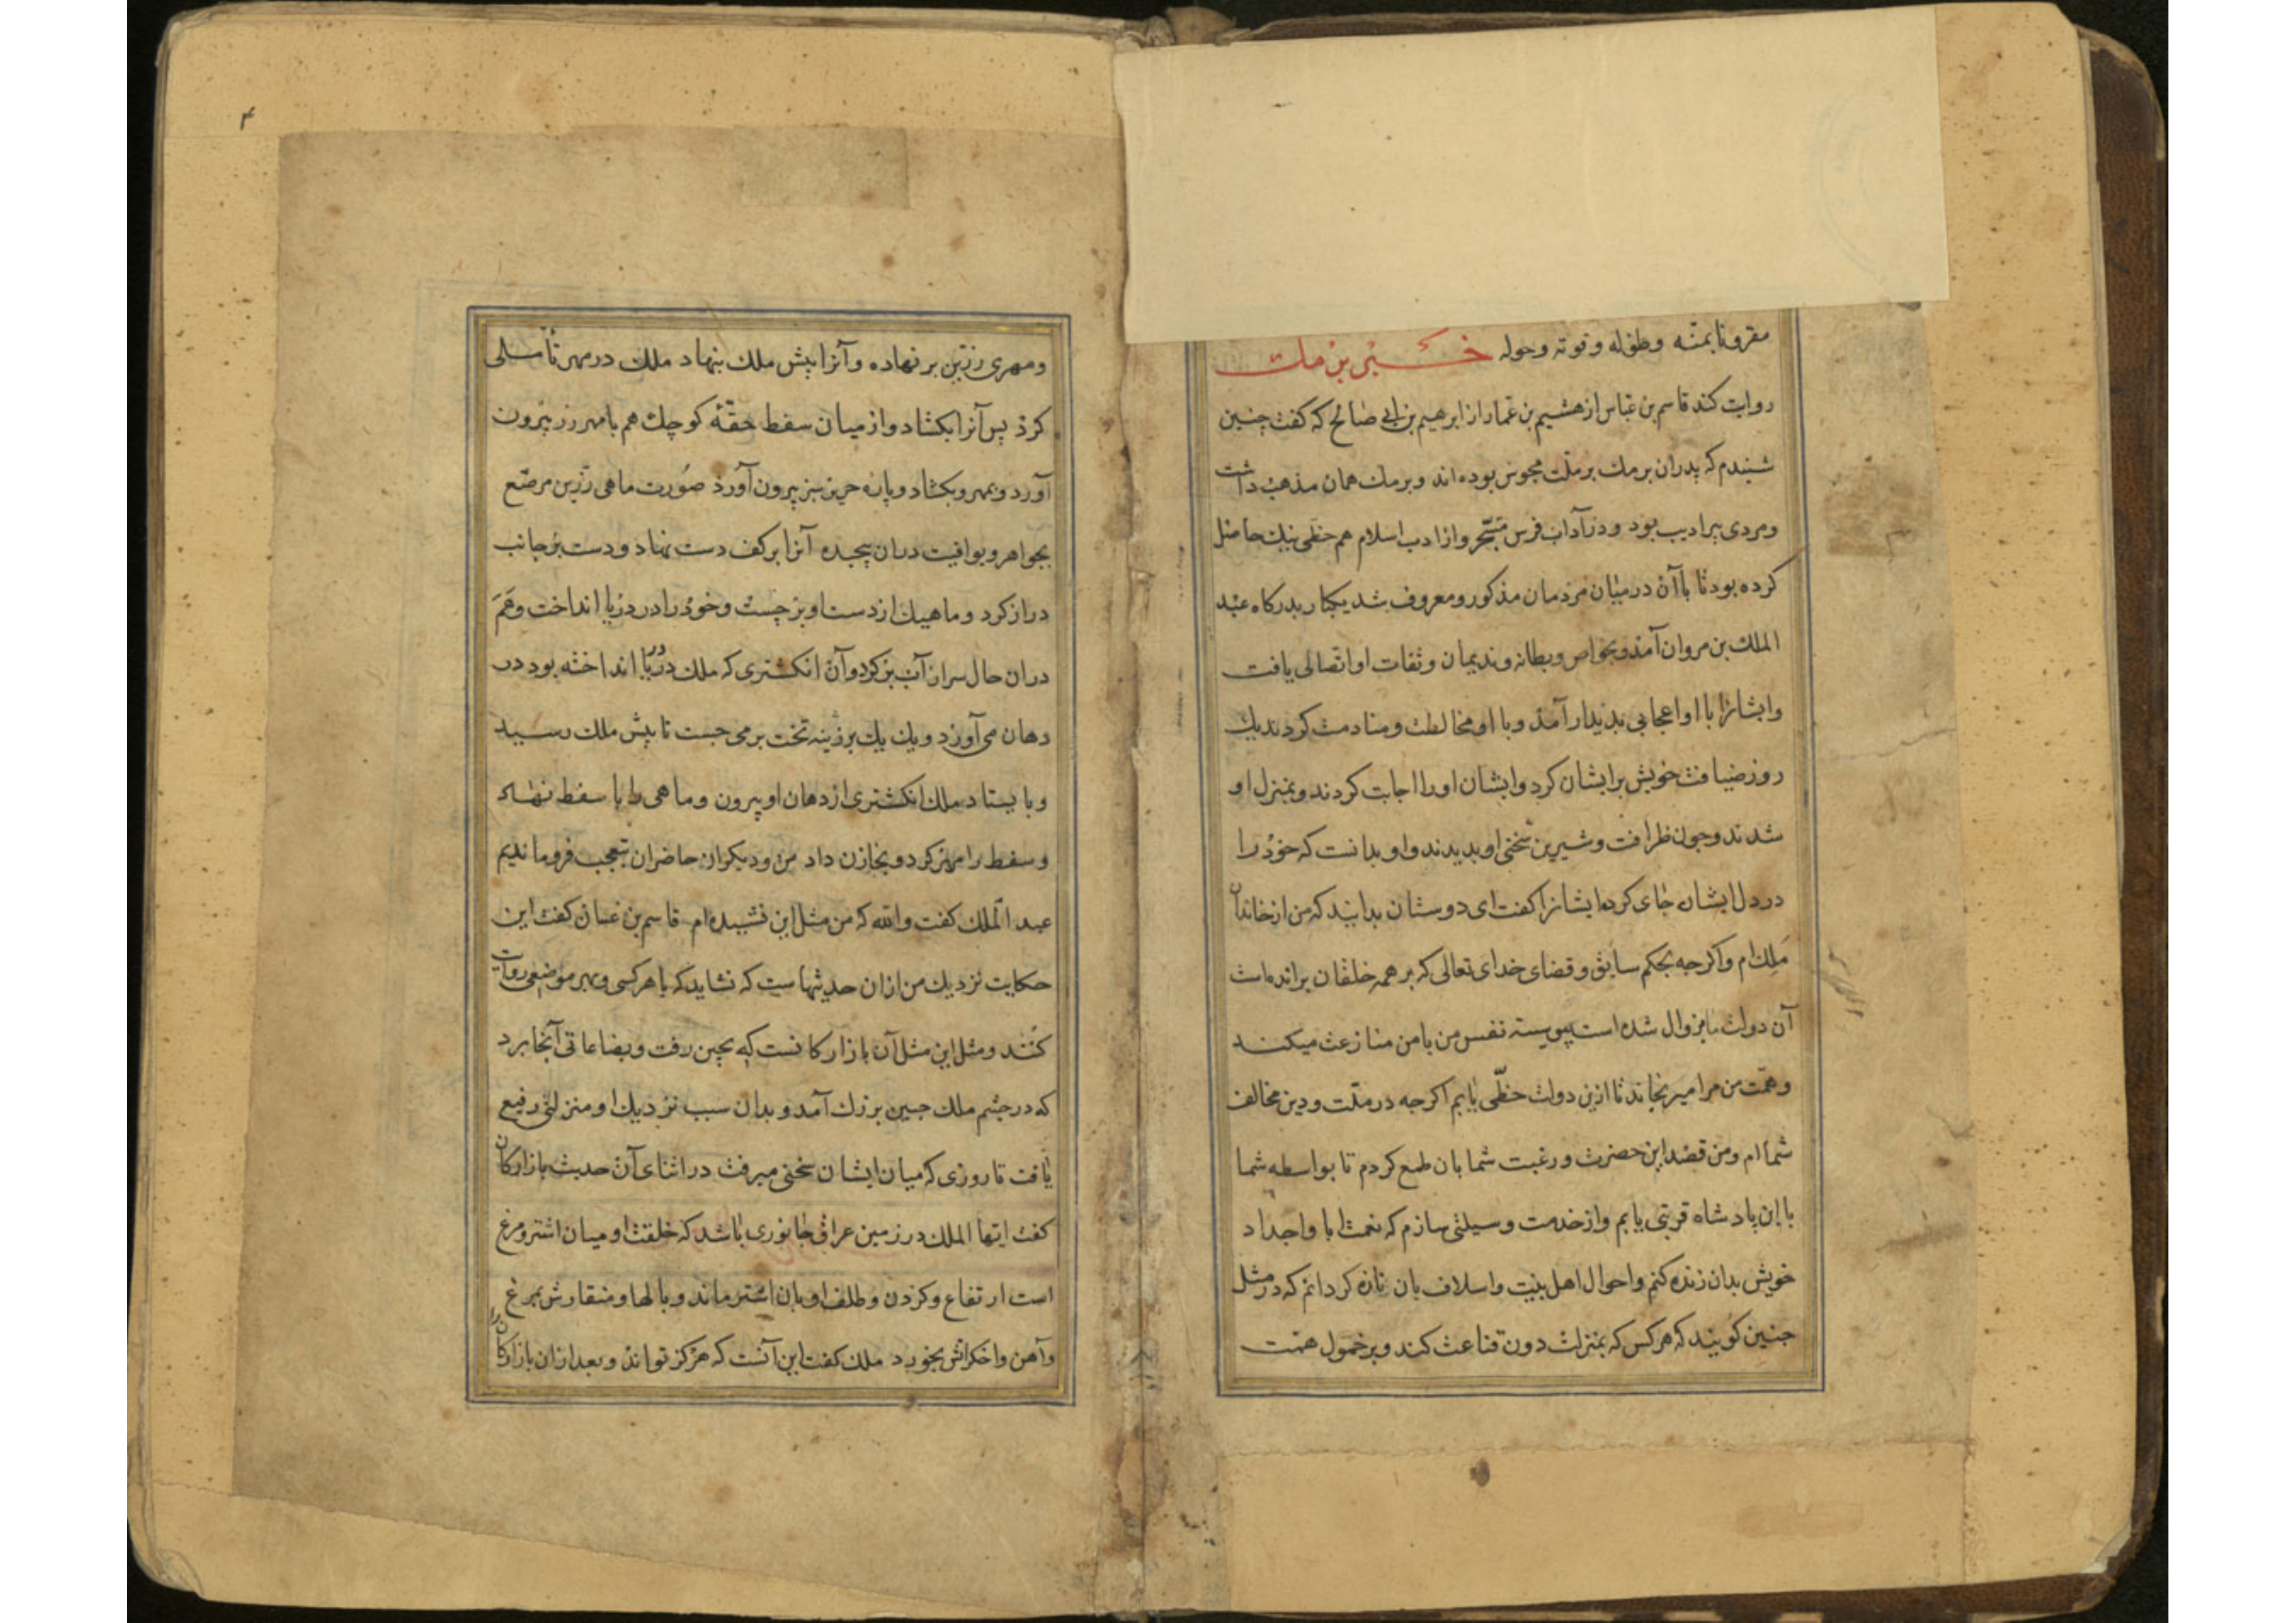 مقرونا بمنّه وطوله وقوته وحوله
روایت کند قاسم بن عباس از هشیم بن عمار از ابرهیم بن ابی صالح که کفت چنین
شنیدم که پدران برمك بر ملّت مجوس بوده اند وبرمك همان مذهب داشت
ومردی پیر ادیب بود ودر آداب فرس متبحّر واز ادب اسلام هم حظی نیك حاصل
کرده بود تا باآن در میان مردمان مذکور ومعروف شد یکبار بدرکاه عبد
الملك بن مروان آمذ وبخواص وبطانه وندیمان وثقات او اتّصالی یافت
وایشانرا با او اعجابی بدیدار آمذ وبا او مخالطت ومنادمت کردند یك
روز ضیافت خویش بر ایشان کرد وایشان اورا اجابت کردند وبمنزل او
شدند وجون ظرافت وشیرین سخنی او بدیدند واو بدانست که خوذ را
در دل ایشان جای کرد ایشانرا کفت ای دوستان بدانید که من از خاندان
ملك ام واکرجه بحکم سابق وقضای خدای تعالی که بر همه خلقان برانده است
آن دولت بزوال شده است پیوسته نفس من با من منازعت میکند
وهمّت من مرا میرنجاند تا ازین دولت حظّی یابم اکرجه در ملّت ودین مخالف
شما ام ومن قصد این حضرت ورغبت شما بان طمع کردم تا بواسطه شما
با این پادشاه قربتی یابم واز خدمت وسیلتی سازم که نعمت ابا واجداد
خویش بدان زنده کنم واحوال اهل بیت واسلاف بان تازه کردانم که در مثل
جنین کویند که هرکس که بمنزلت دون قناعت کند وبر خمول همّت
ومهری زرّین بر نهاده وآنرا پیش ملك بنهاد ملك در مهر تأملی
کرد پس آنرا بکشاد واز میان سفط حقّهٔ کوچك هم بامهر زر بیرون
آورد وبمهر وبکشاد وپاره حریر سبز بیرون آورد صورت ماهی زرین مرصّع
بجواهر ویواقیت دران پیچیده آنرا بر کف دست نهاد ودست بر جانب
دراز کرد وماهیك از دست او بر جست وخوذرا در دریا انداخت وهم
دران حال سر از آب بر کرد وآن انکشتری که ملك در دریا انداخته بود در
دهان می آورد ویك یك بر زینه تخت بر می جست تا پیش ملك رسید
وبایستاد ملك انکشتری از دهان او بیرون وماهی را با سفط نهاد
وسفط را مهر کرد وبخازن داد من ودیکران حاضران بتعجب فرو ماندیم
عبد الملك کفت والله که من مثل این نشنیده ام قاسم بن غسان کفت این
حکایت نزدیك من ازان حدیثهاست که نشاید که با هر کسی وبهر موضعی روایت
کنند ومثل این مثل آن بازارکانست که بچین رفت وبضاعاتی آنجا برد
که در جشم ملك جین بزرك آمد وبدان سبب نزدیك او منزلتی رفیع
یافت تا روزی که میان ایشان سخنی میرفت در اثنای آن حدیث بازارکان
کفت ایها الملك در زمین عراق جانوری باشد که خلقت او میان اشتر ومرغ
است ارتفاع وکردن وظلف او بان اشتر ماند وبالها ومنقارش بمرغ
وآهن واخکر آتش بخورد ملك کفت این آنست که هرکز نتواند وبعد ازان بازارکان را